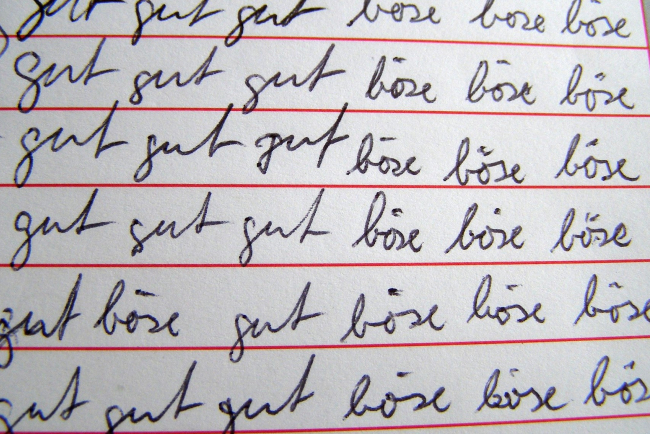 gut gut gut böse böse böse
gut gut gut böse böse böse
gut gut gut böse böse böse
gut gut gut böse böse böse
gut böse gut böse böse böse
gut gut gut böse böse bös